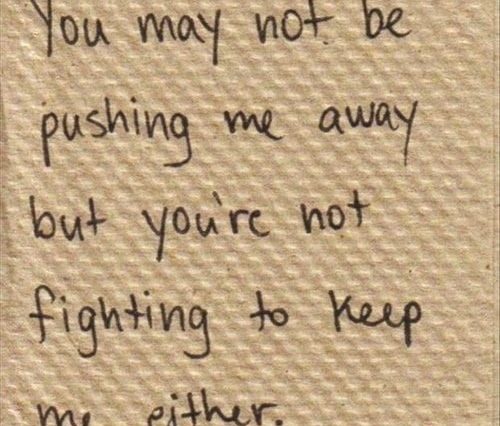 You may not be
pushing me away
but you're not
fighting to keep
me either.